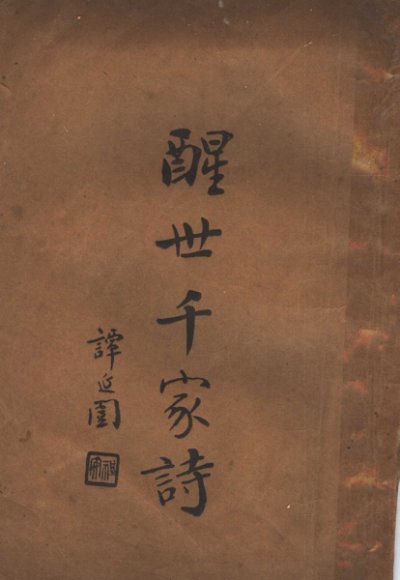 醒世千家詩
譚延闓
祖安